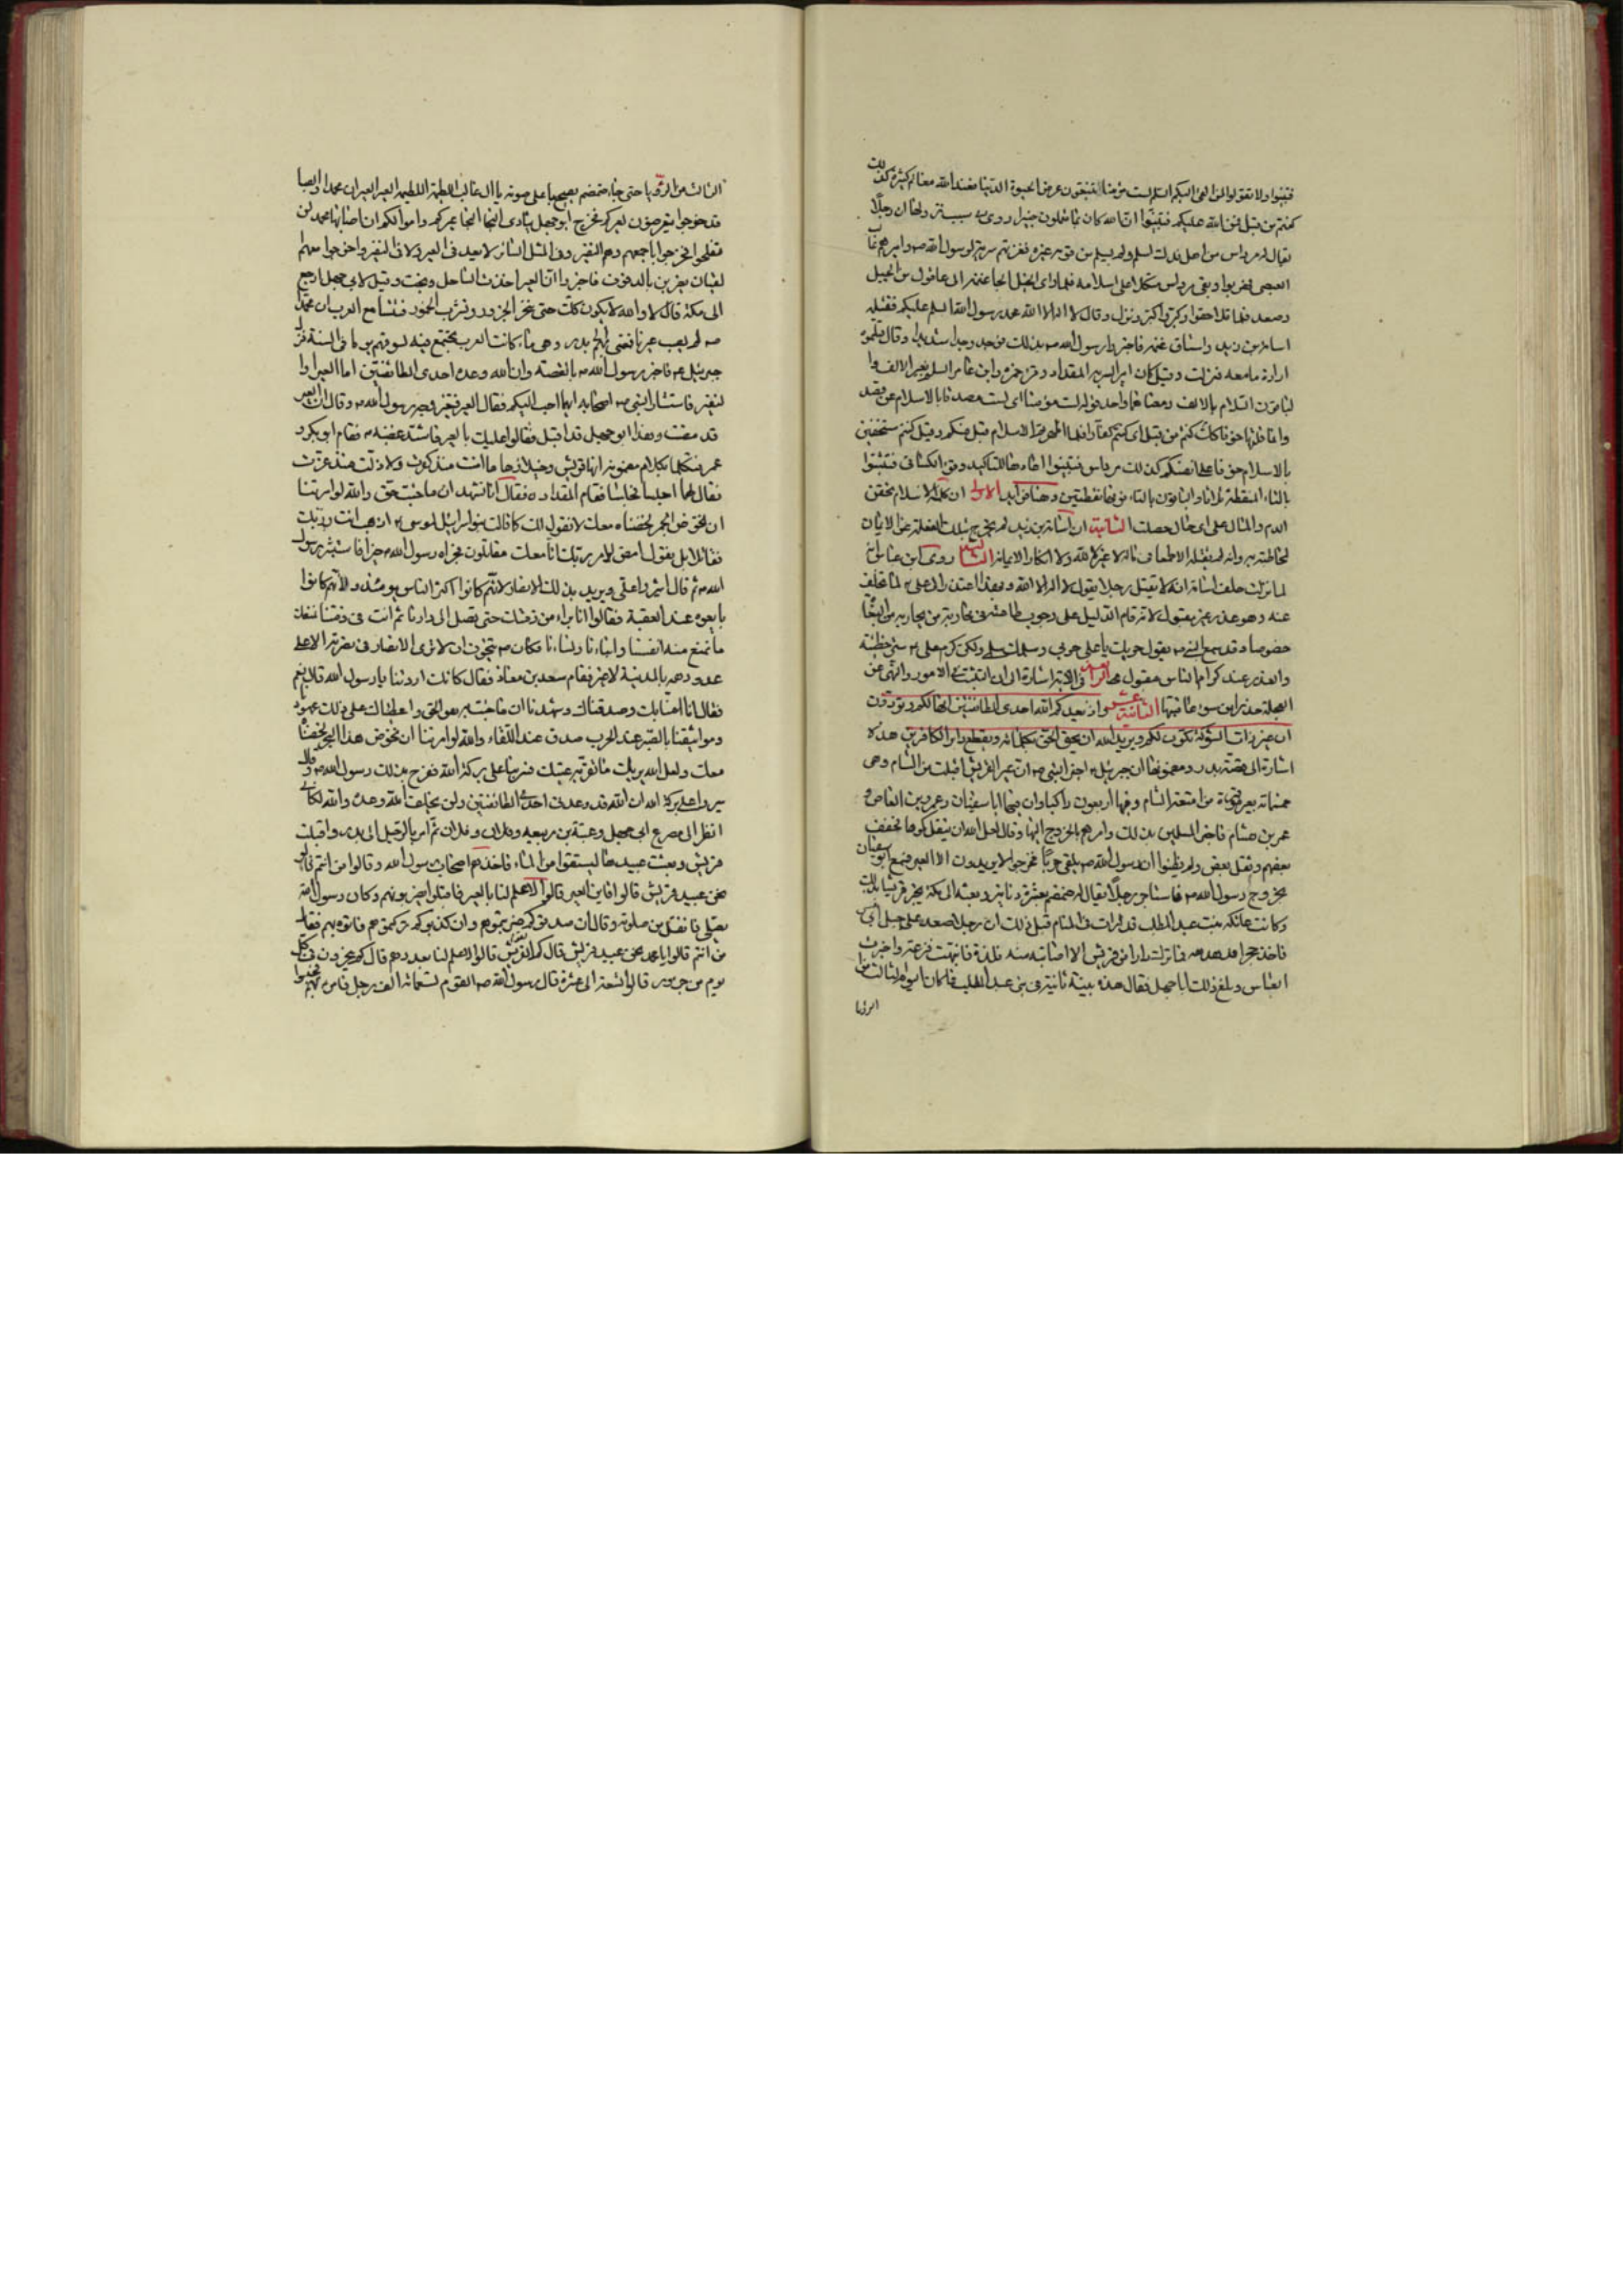 فتبينوا ولا تقولوا لمن القى اليكم السلم لست مؤمنا تبتغون عرض الحيوة الدنيا فعند الله مغانم كثيرة كذلك
كنتم من قبل فمن الله عليكم فتبينوا ان الله كان بما تعملون خبيرا روى فى سبب نزولها ان رجلا
يقال له مرداس من اهل فدك اسلم ولم يسلم من قومه غيره فغزتهم سرية لرسول الله ص وامرهم غالب
الليثى فهربوا وبقى مرداس متكلا على اسلامه فلما راى الخيل الجأ غنمه الى عاقول من الجبل
وصعد فلما تلاحقوا وكبروا كبر ونزل وقال لا اله الا الله محمد رسول الله السلم عليكم فقتله
اسامة بن زيد واستاق غنمه فاخبروا رسول الله ص بذلك فوجد وجدا شديدا وقال قتلتموه
ارادة ما معه فنزلت وقيل كان امير السرية المقداد وقرء حمزة وابن عامر السلم بغير الالف و
الباقون السلام بالالف ومعناهما واحد قوله لست مؤمنا اى لست مصدقا بالاسلام عن قصد
بالاسلام حتى فاعلى نفسكم كذلك مرداس فتبينوا اعادها للتاكيد وفى الكشاف فتثبتوا
بالثاء المنقطة ثلاثا والباقون بالتاء وهنا فوايد الاولى ان كلمة الاسلام يحقن
الدم والمال على اى حال حصلت الثانية ان اسامة بن زيد لم يخرج بتلك الفعلة عن الايمان
لمخاطبته به وانه لم يقتله الا طمعا فى ماله لا غيره لله ولا انكارا لايمانه الثالثة روى ابن عباس انه
لما نزلت حلف اسامة انه لا يقتل رجلا يقول لا اله الا الله وبهذا اعتذر الى على ع لما تخلف
عنه وهو عذر غير مقبول لانه قام الدليل على وجوب طاعته فى محاربة من يحاربه من البغاة
خصوصا وقد سمع النبى ص يقول حربك يا على حربى وسلمك سلمى ولكن كرم على ع ستر خطيئته
والعذر عند كرام الناس مقبول الرابعة فى الاية اشارة الى ان التثبت فى الامور والنهى عن
العجلة حذرا من سوء عاقبتها الثانية عشر واذ يعدكم الله احدى الطائفتين انها لكم وتودون
ان غير ذات الشوكة تكون لكم ويريد الله ان يحق الحق بكلماته ويقطع دابر الكافرين هذه
اشارة الى قصة بدر ومضمونها ان جبرئيل ع اخبر النبى ص ان عير القريش اقبلت من الشام وهى
وفيها اربعون راكبا وان فيها ابا سفيان وعمرو بن العاص و
عمر بن هشام فاخبر المسلمين بذلك وامرهم بالخروج اليها وقال لعل الله ان ينفلكموها فخفف
بعضهم وثقل بعض ولم يظنوا ان رسول الله ص يلقى حربا فخرجوا لا يريدون الا العير فسمع ابو سفيان
بخروج رسول الله ص فاستاجر رجلا يقال له ضمضم بعشرة دنانير وبعثه الى مكة يخبر قريشا بذلك
وكانت عاتكة بنت عبد المطلب قد رات فى المنام قبل ذلك ان رجلا صعد على جبل ابى
فاخذ حجرا فهدهده فما تركت دارا من قريش الا اصابته منه فلذة فانتبهت فزعة واخبرت
العباس وبلغ ذلك ابا جهل فقال هذه نبية ثانية فى بنى عبد المطلب فلما كان اليوم الثالث من
الرؤيا
الثالث من الرؤيا حتى جاء ضمضم يصيح باعلى صوته يا ال غالب اللطيمة اللطيمة العير العير ان محمدا والصباة
قد خرجوا يتعرضون لعيركم فخرج ابو جهل ينادى النجا النجا عيركم واموالكم ان اصابها محمد لن
تفلحوا فخرجوا باجمعهم وهم النفير وفى المثل السائر لا يعد فى العير ولا فى النفير واخرجوا معهم
القيان يضربن بالدفوف فاخبروا ان العير اخذت الساحل ونجت وقيل لابى جهل ارجع
الى مكة قال لا والله لا يكون ذلك حتى ننحر الجزور ونشرب الخمور فتتسامع العرب ان محمدا
ص لم يصب عيرنا فمضى بهم الى بدر وهى ماء كانت العرب تجتمع فيه لسوقهم يوما فى السنة فنزل
جبرئيل ع فاخبر رسول الله ص بالقصة وان الله وعده احدى الطائفتين اما العير او
النفير فاستشار النبى ص اصحابه ايهما احب اليكم فقال العير فتغير وجه رسول الله ص وقال ان العير
قد مضت وهذا ابو جهل قد اقبل فقالوا عليك بالعير فاشتد غضبه ص فقام ابو بكر و
عمر فتكلما بكلام مضمونه انها قريش وخيلاؤها ما امنت منذ كفرت ولا ذلت منذ عزت
فقال لهما اجلسا فجلسا فقام المقداد ره فقال انا نشهد ان ما جئت حق والله لو امرتنا
ان نخوض الجمر لخضناه معك لا نقول لك كما قالت بنو اسرائيل لموسى ع اذهب انت وربك
فقاتلا بل نقول امض لامر ربك فانا معك مقاتلون فجزاه رسول الله ص خيرا فاستبشر رسول
الله ص ثم قال اشيروا على ويريد بذلك الانصار لانهم كانوا اكثر الناس يومئذ ولانهم كانوا
بايعوه عند العقبة فقالوا انا براء من ذمتك حتى تصل الى دارنا ثم انت فى ذمتنا نمنعك
ما نمنع منه انفسنا وابناءنا ونساءنا فكان ص يتخوف ان لا ترى الانصار نصرته الا على
عدو دهمه بالمدينة لا غير فقام سعد بن معاذ فقال كانك اردتنا يا رسول الله قال نعم
فقال انا امنا بك وصدقناك وشهدنا ان ما جئت به هو الحق واعطيناك على ذلك عهودنا
ومواثيقنا بالصبر عند الحرب صدق عند اللقاء والله لو امرتنا ان نخوض هذا البحر لخضناه
معك ولعل الله يريك ما تقر به عينك فسر بنا على بركة الله ففرح بذلك رسول الله ص وقال
سيروا على بركة الله ان الله قد وعدنى احدى الطائفتين ولن يخلف الله وعده والله لكانى
انظر الى مصرع ابى جهل وعتبة بن ربيعه وفلان وفلان ثم امر بالرحيل الى بدر واقبلت
قريش وبعثت عبيدها ليستقوا من الماء فاخذهم اصحاب رسول الله وقالوا من انتم قالوا
نحن عبيد قريش قالوا فاين العير قالوا لا علم لنا بالعير فاقبلوا يضربونهم وكان رسول الله
يصلى فانفتل من صلوته وقال ان صدقوكم ضربتموهم وان كذبوكم تركتموهم فاتوه بهم فقال
من انتم قالوا يا محمد نحن عبيد قريش قال كم القوم قالوا لا علم لنا بعددهم قال كم ينحرون فى كل
يوم من جزور قالوا تسعة الى عشرة قال رسول الله ص القوم تسعمائة الى الف رجل فامر بهم فحبسوا